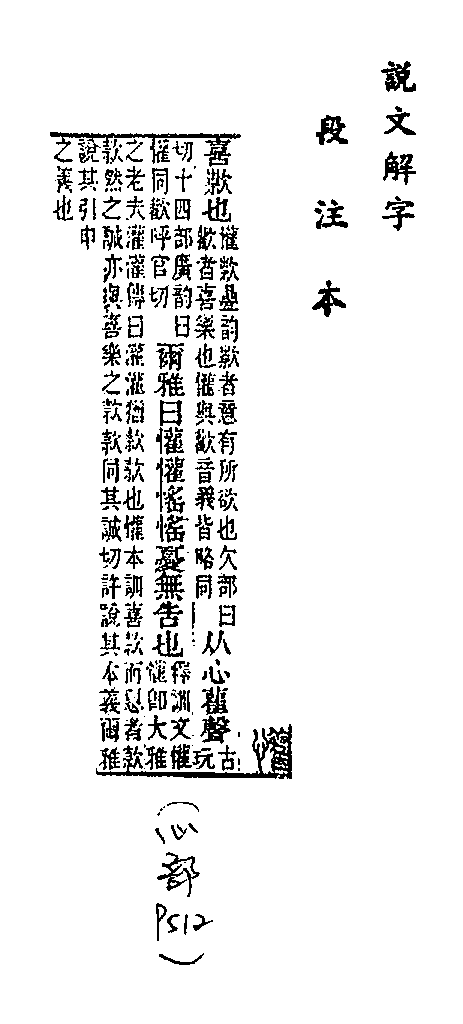 說文解字
段注本
懽
喜款也
懽款曡韵款者意有所欲也欠部曰
歡者喜樂也懽與歡音義皆略同
从心雚聲
古
玩
切十四部廣韵曰
懽同歡呼官切
爾雅曰懽懽愮愮憂無告也
釋訓文懽
懽卽大雅
之老夫灌灌傳曰灌灌猶款款也懽本訓喜款而𢝊者款
款然之誠亦與喜樂之款款同其誠切許說其本義爾雅
說其引申
之義也
(心部 P512)